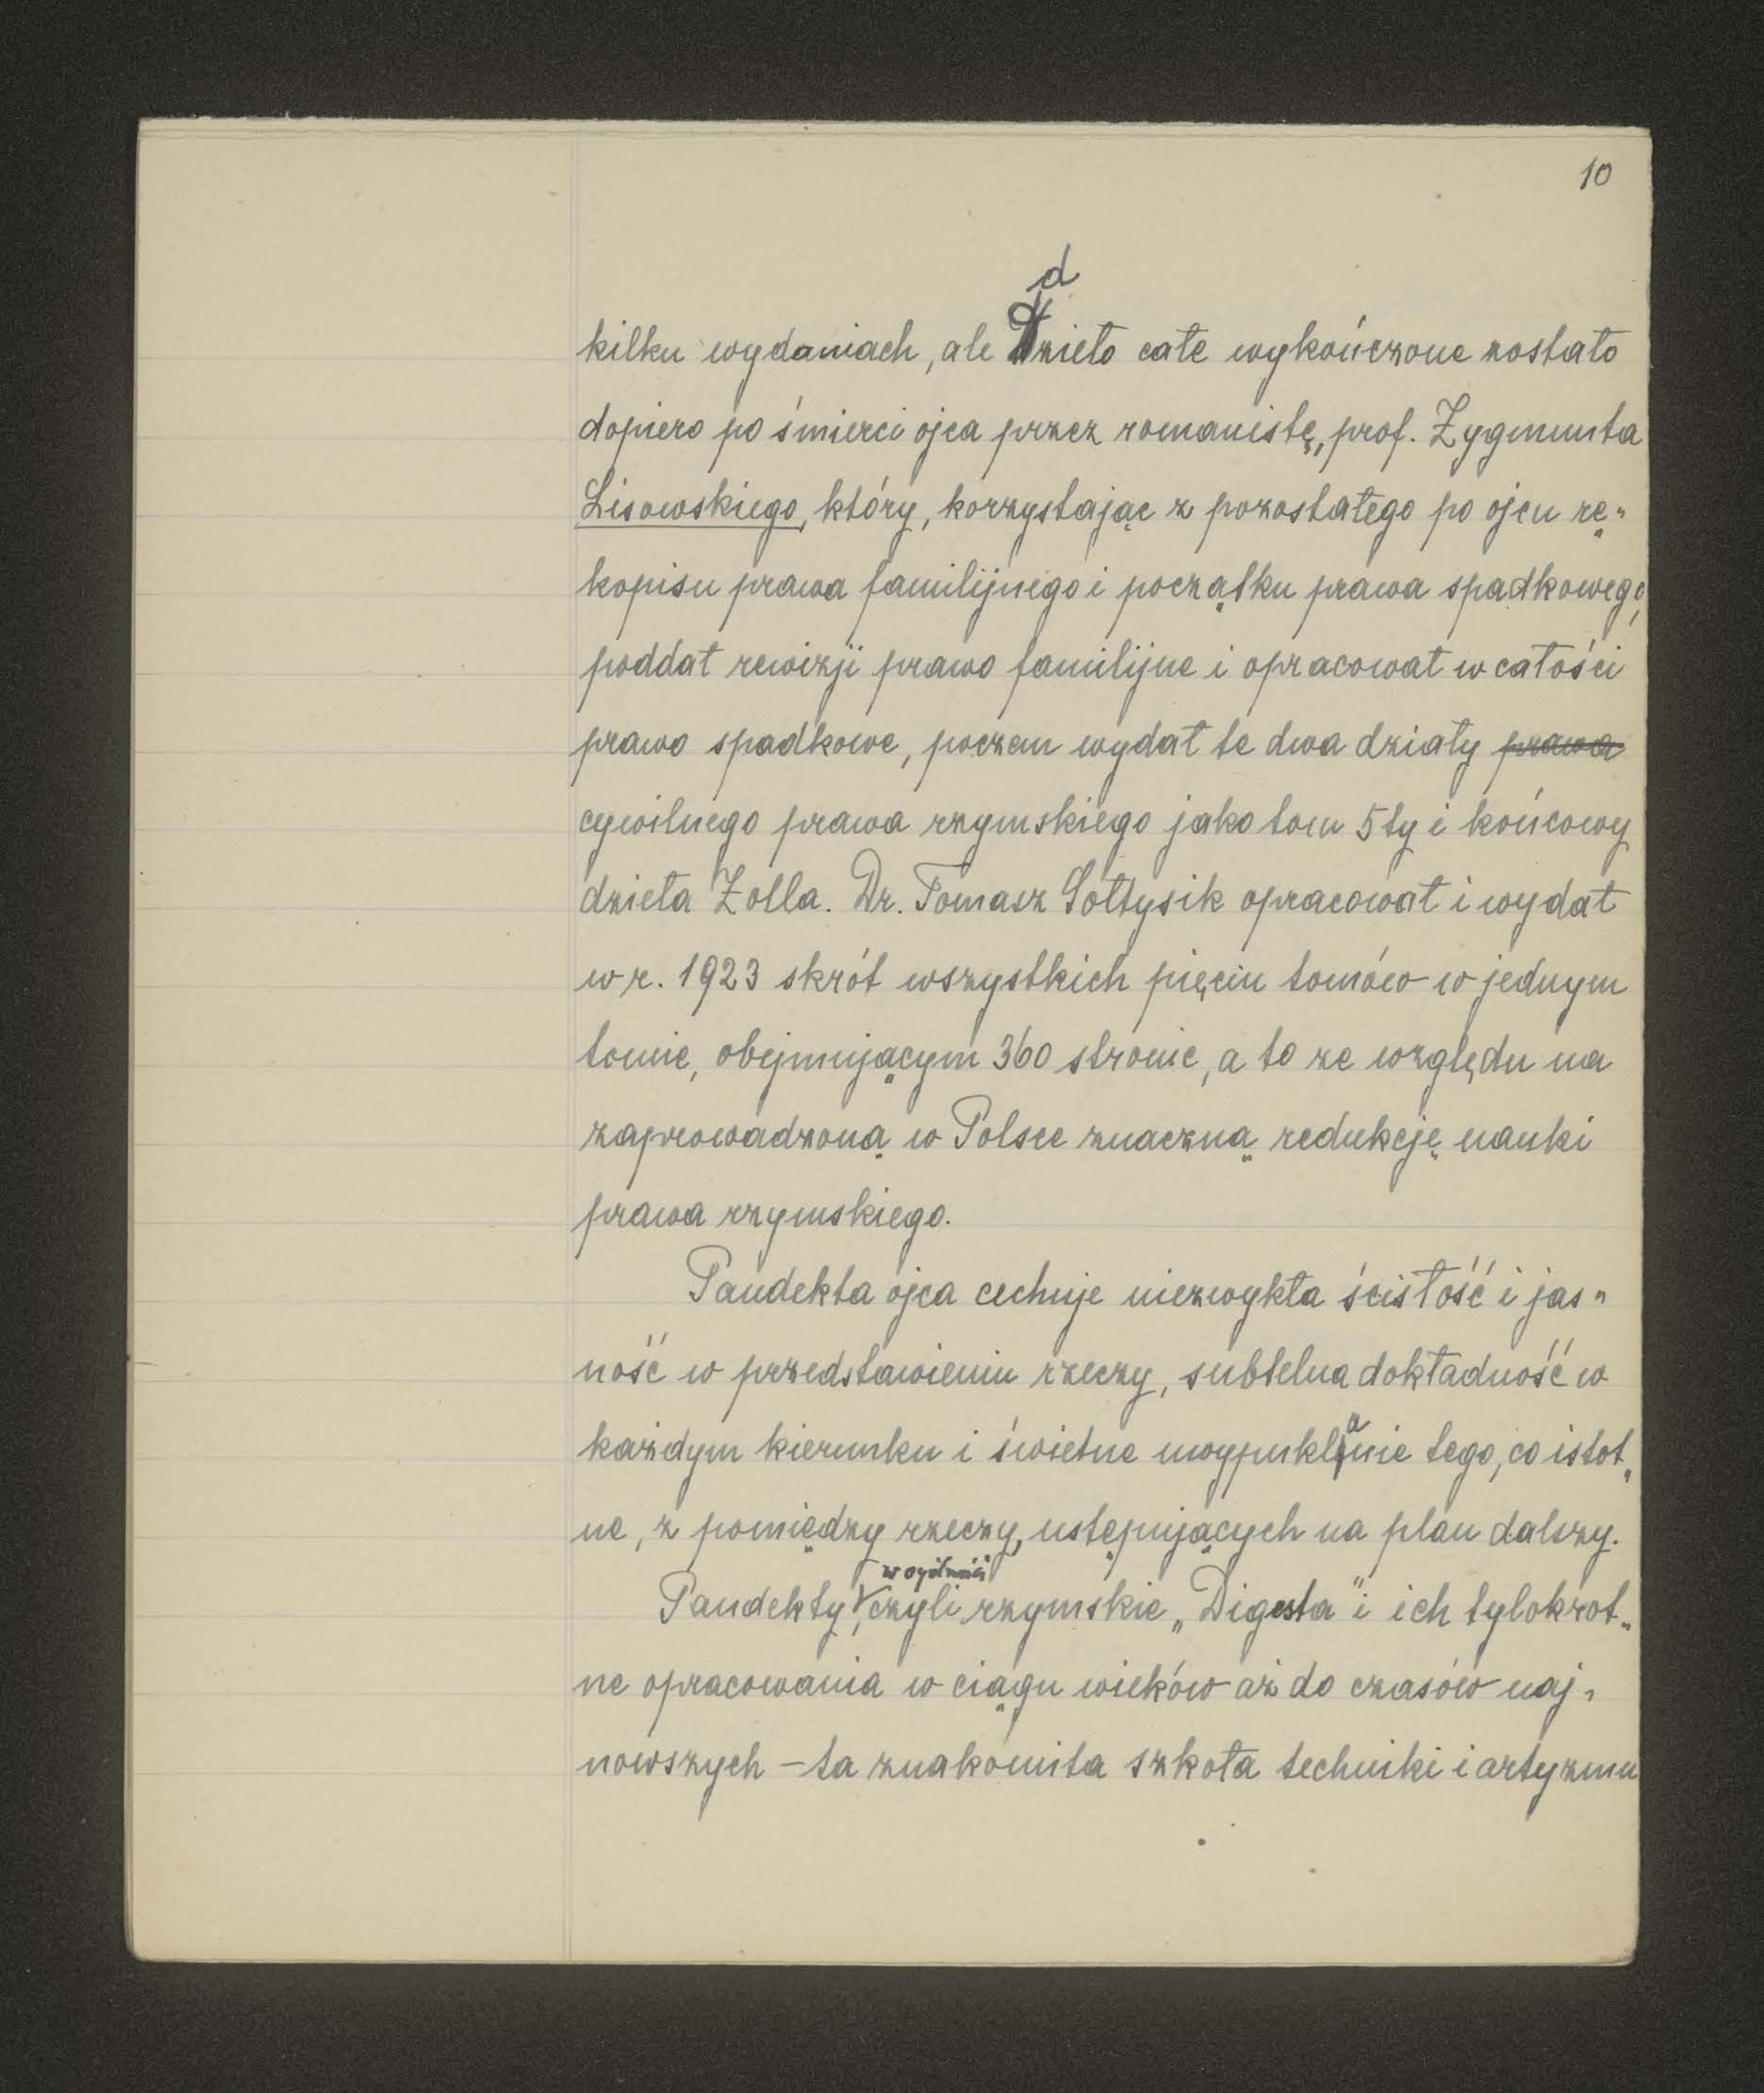 10
kilku wydaniach, ale dzieło całe wykończone zostało
dopiero po śmierci ojca przez romanistę, prof. Zygmunta
Lisowskiego, który, korzystając z pozostałego po ojcu rę„
kopisu prawa familijnego i początku prawa spadkowego,
poddał rewizji prawo familijne i opracował w całości
prawo spadkowe, poczem wydał te dwa działy prawa
cywilnego prawa rzymskiego jako tom 5ty i końcowy
dzieła Zolla. Dr. Tomasz Sołtysik opracował i wydał
w r. 1923 skrót wszystkich pięciu tomów w jednym
tomie, obejmującym 360 stronic, a to ze względu na
zaprowadzoną w Polsce znaczną redukcję nauki
prawa rzymskiego.
Pandekta ojca cechuje niezwykła ścisłość i jas„
ność w przedstawieniu rzeczy, subtelna dokładność w
każdym kierunku i świetne uwypuklanie tego, co istot„
ne, z pomiędzy rzeczy, ustępujących na plan dalszy.
w ogólności
Pandekty, czyli rzymskie „Digesta" i ich tylokrot„
ne opracowania w ciągu wieków aż do czasów naj„
nowszych – ta znakomita szkoła techniki i artyzmu